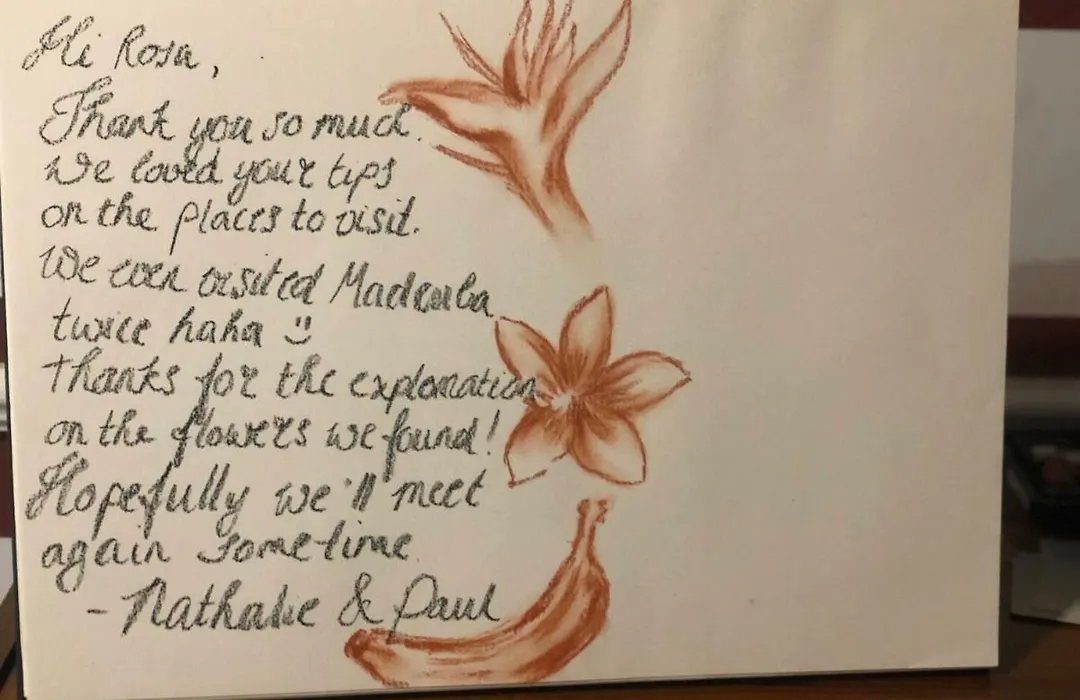 Hi Rosa,
Thank you so much.
We loved your tips
on the places to visit.
We even visited
twice haha :)
Thanks for the explanation
on the flowers we found!
Hopefully we'll meet
again sometime
- Nathalie & Paul